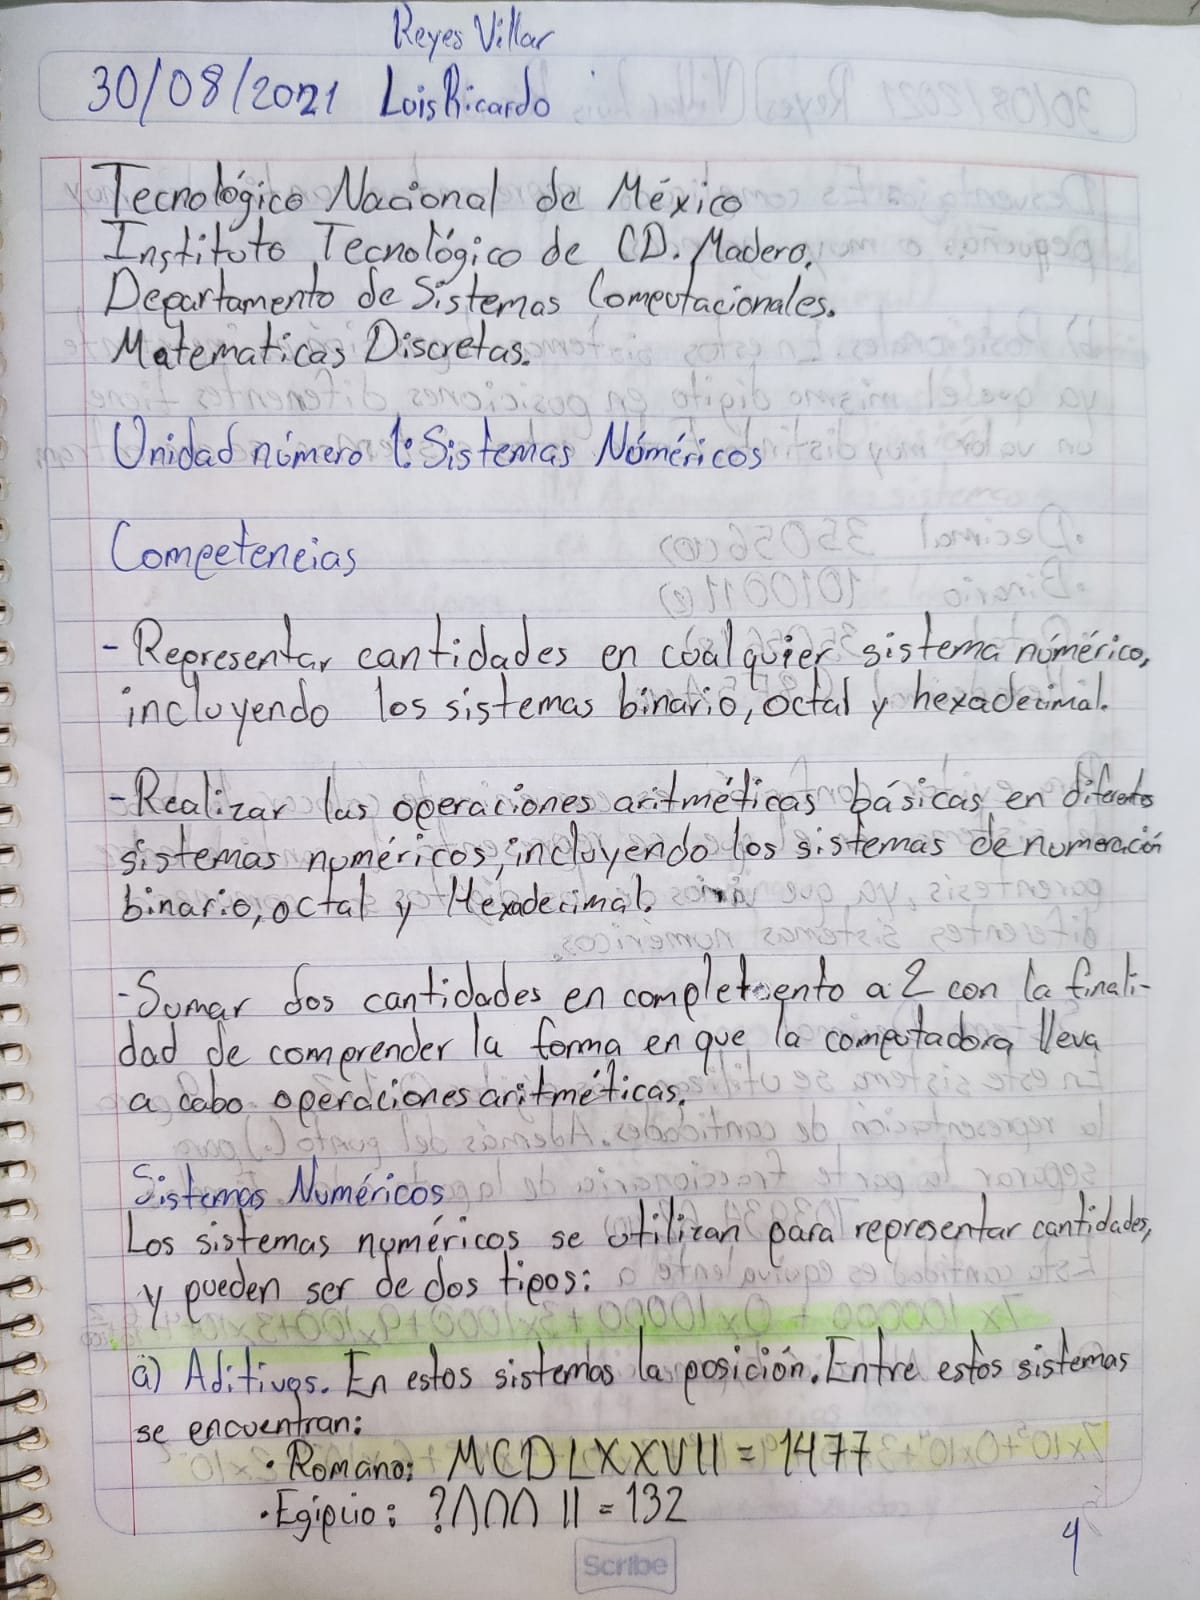 Reyes Villar
30/08/2021 Luis Ricardo
Tecnológico Nacional de México
Instituto Tecnológico de CD. Madero.
Departamento de Sistemas Computacionales.
Matematicas Discretas.
Unidad número 1: Sistemas Núméricos
Competencias
- Representar cantidades en cualquier sistema númérico,
incluyendo los sistemas binario, octal y hexadecimal.
- Realizar las operaciones aritméticas básicas en diferentes
sistemas numéricos, incluyendo los sistemas de numeración
binario, octal y Hexadecimal.
- Sumar dos cantidades en complemento a 2 con la finali-
dad de comprender la forma en que la computadora lleva
a cabo operaciones aritméticas.
Sistemas Numéricos
Los sistemas numéricos se utilizan para representar cantidades,
y pueden ser de dos tipos:
a) Aditivos. En estos sistemas la posición. Entre estos sistemas
se encuentran:
· Romano: MCDLXXVII = 1477
· Egipcio: ?∩∩∩ || = 132
4
Scribe